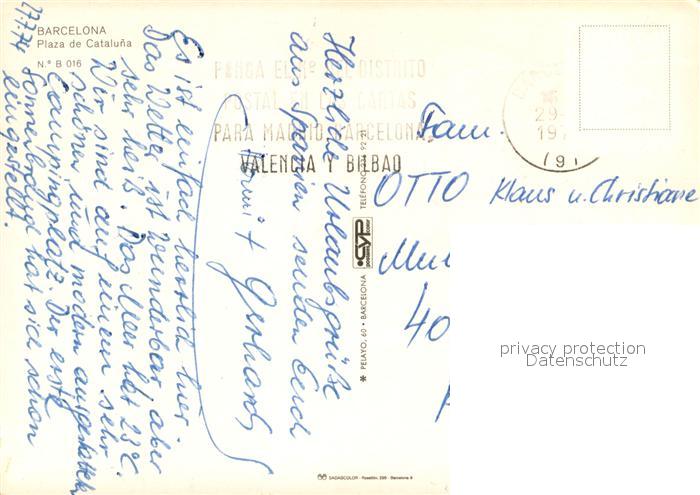 BARCELONA
Plaza de Cataluña
N.º B 016
27.7.74
Herzliche Urlaubsgrüße
aus Spanien senden Euch
+ Gerhard
Es ist einfach herrlich hier.
Das Wetter ist wunderbar aber
sehr heiß. Das Meer hat 23°C.
Wir sind auf einem sehr
schönen und modern ausgestatteten
Campingplatz. Der erste
Sonnenbrand hat sich schon
eingestellt.
DISTRITO
POSTAL EN LAS CARTAS
PARA MADRID BARCELONA
VALENCIA Y BILBAO
29
19
(9)
Fam.
OTTO Klaus u. Christiane
40
CYP
PELAYO, 60 • BARCELONA
TELÉFONO
privacy protection
Datenschutz
SADAGCOLOR - Rosellón, 298 - Barcelona 9